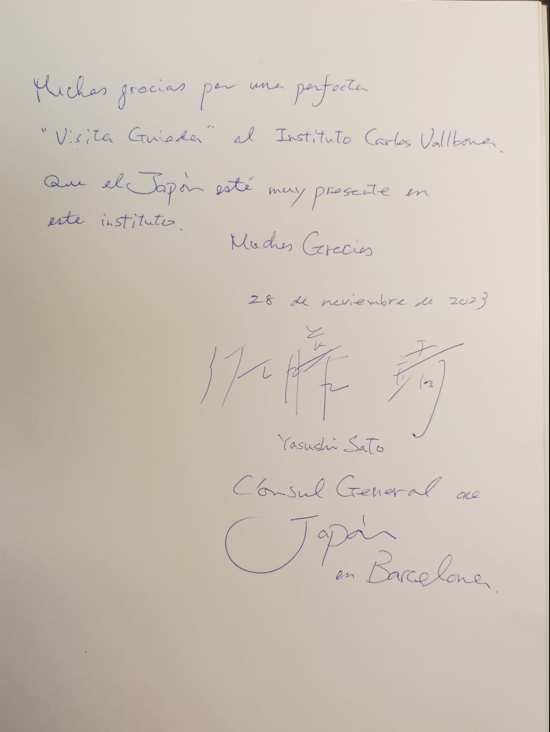 Muchas gracias por una perfecta
"Visita Guiada" al Instituto Carles Vallbona.
Que el Japón esté muy presente en
este instituto.
Muchas Gracias
28 de noviembre de 2023
Yasushi Sato
Cónsul General de
Japón
en Barcelona.